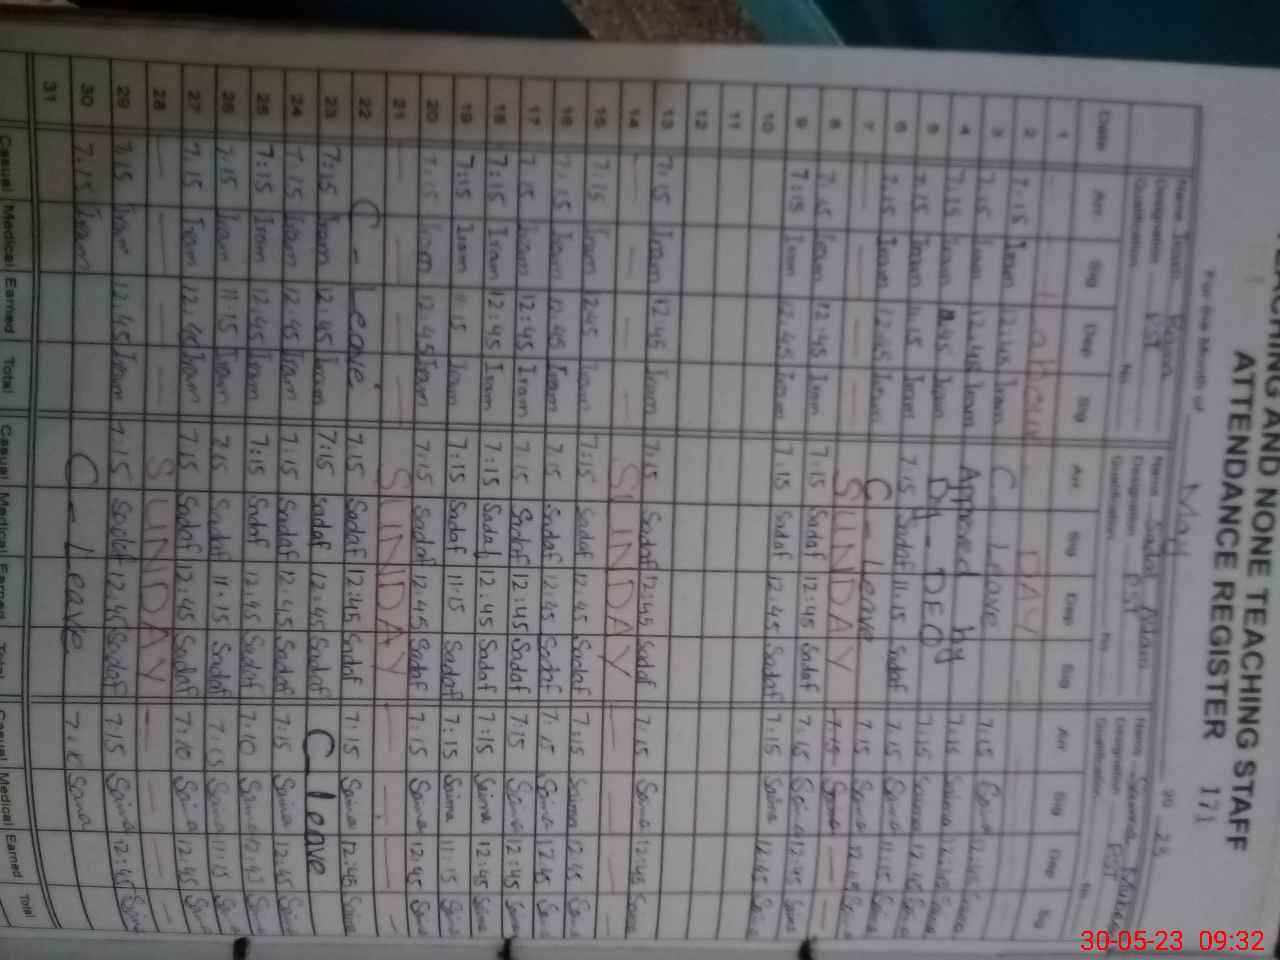 TEACHING AND NONE TEACHING STAFF
ATTENDANCE REGISTER 171
For the Month of May 20 23
Name Name Sadaf Name
Designation PST Designation PST Designation PST
Qualification No. Qualification No. Qualification No.
Date Arr Sig Dep Sig Arr Sig Dep Sig Arr Sig Dep Sig
1 Labour DAY
2 7:15 Iram 12:45 Iram C Leave 7:15 12:45
3 7:15 Iram 12:45 Iram Approved by 7:15 Saima 12:45 Saima
4 7:15 Iram 12:45 Iram By - DEO 7:15 Saima 12:45 Saima
5 7:15 Iram 11:15 Iram 7:15 Sadaf 11:15 Sadaf 7:15 Saima 11:15 Saima
6 7:15 Iram 12:45 Iram C - Leave 7:15 Saima 12:45
7 — — — SUNDAY — —
8 7:15 Iram 12:45 Iram 7:15 Sadaf 12:45 Sadaf 7:15 Saima 12:45 Saima
9 7:15 Iram 12:45 Iram 7:15 Sadaf 12:45 Sadaf 7:15 Saima 12:45 Saima
10
11
12
13 7:15 Iram 12:45 Iram 7:15 Sadaf 12:45 Sadaf 7:15 Saima 12:45 Saima
14 — — — — SUNDAY — — —
15 7:15 Iram 12:45 Iram 7:15 Sadaf 12:45 Sadaf 7:15 Saima 12:45
16 7:15 Iram 12:45 Iram 7:15 Sadaf 12:45 Sadaf 7:15 Saima 12:45
17 7:15 Iram 12:45 Iram 7:15 Sadaf 12:45 Sadaf 7:15 Saima 12:45
18 7:15 Iram 12:45 Iram 7:15 Sadaf 12:45 Sadaf 7:15 Saima 12:45
19 7:15 Iram 11:15 Iram 7:15 Sadaf 11:15 Sadaf 7:15 Saima 11:15
20 7:15 Iram 12:45 Iram 7:15 Sadaf 12:45 Sadaf 7:15 Saima 12:45
21 — — — SUNDAY — — —
22 C - Leave 7:15 Sadaf 12:45 Sadaf 7:15 Saima 12:45 Saima
23 7:15 Iram 12:45 Iram 7:15 Sadaf 12:45 Sadaf C Leave
24 7:15 Iram 12:45 Iram 7:15 Sadaf 12:45 Sadaf 7:15 Saima 12:45
25 7:15 Iram 12:45 Iram 7:15 Sadaf 12:45 Sadaf 7:10 Saima
26 7:15 Iram 11:15 Iram 7:15 Sadaf 11:15 Sadaf 7:15 Saima 11:15
27 7:15 Iram 12:45 Iram 7:15 Sadaf 12:45 Sadaf 7:10 Saima 12:45
28 — — — SUNDAY — — —
29 7:15 Iram 12:45 Iram 7:15 Sadaf 12:45 Sadaf 7:15 Saima 12:45 Saima
30 7:15 Iram C - Leave Saima
31
Casual Medical Earned Total Casual Medical Earned Total Casual Medical Earned Total
30-05-23 09:32